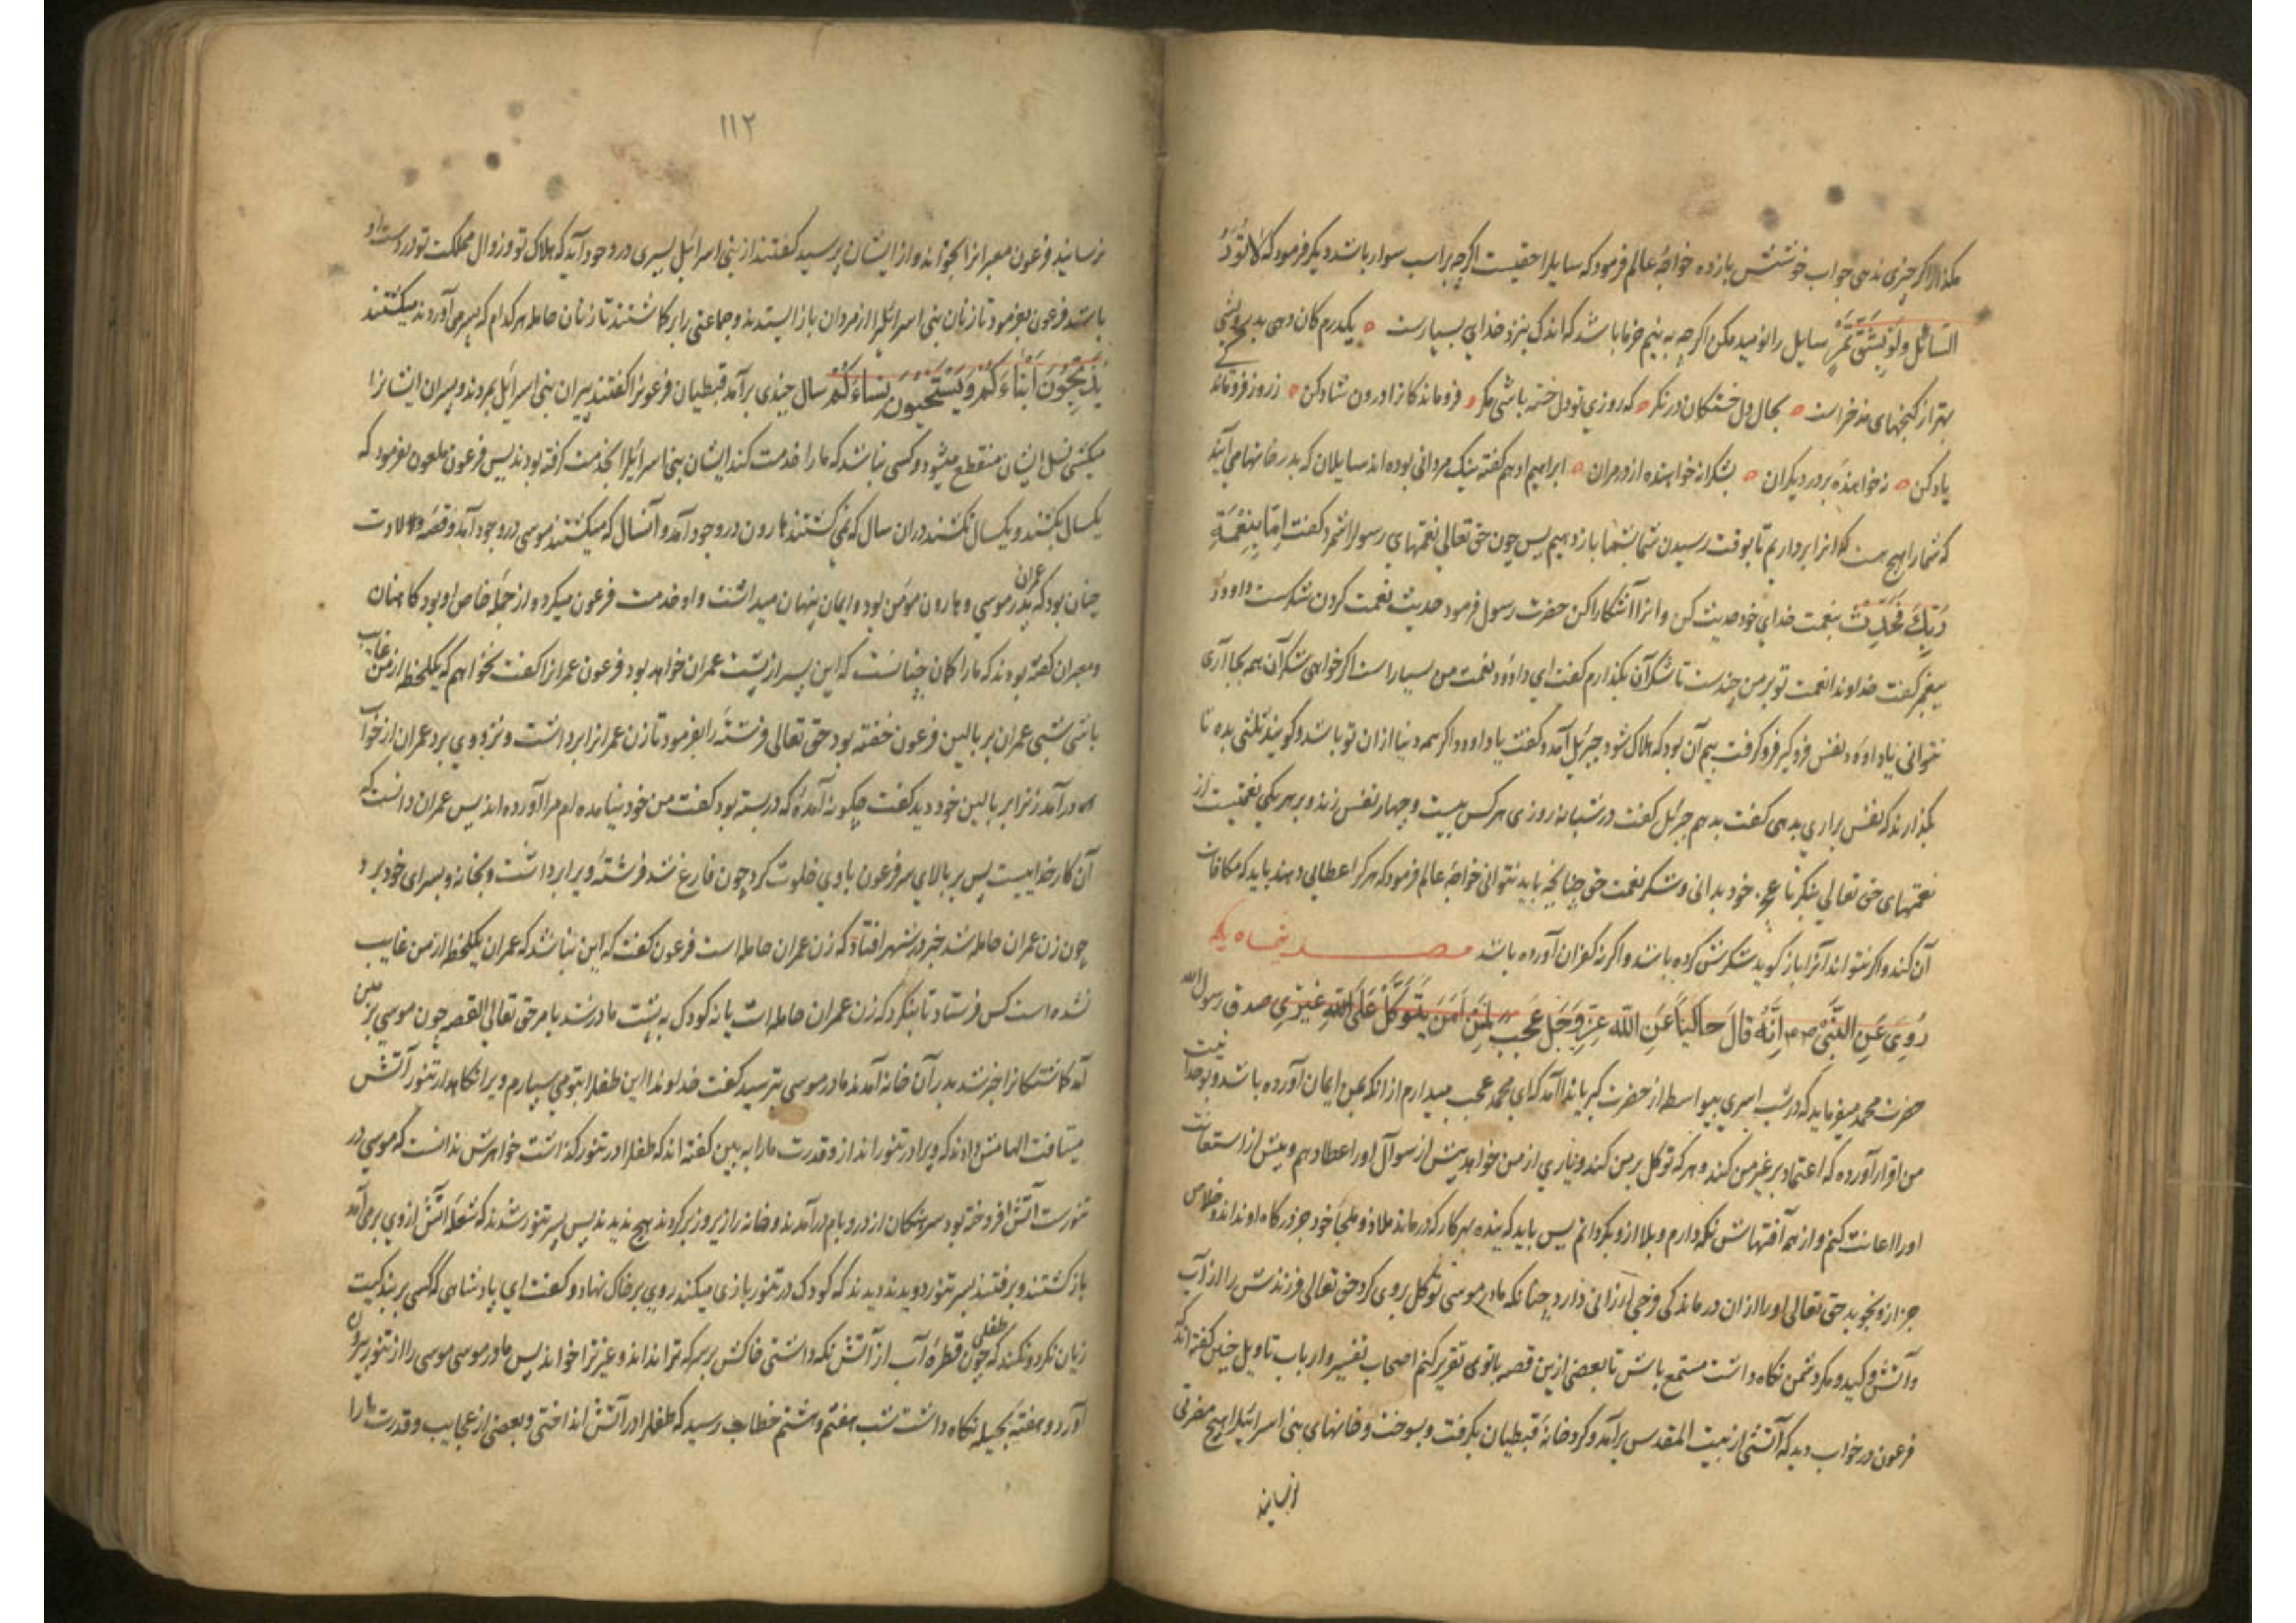 مکذار الا اکر چیزی ندهی جواب خوشش بازده خواجهٔ عالم فرمود که سایلرا حقیست اکرچه بر اسب سوار باشد دیکر فرمود که لا تردّ
السّائل ولو بشقّ تمرٍ سایل را نومید مکن اکرچه به نیم خرما باشد که اندک بنزد خدای بسیارست یکدرم کان دهی بدرویشی
بهتر از کنجهای مدخراست بحال دل خستکان در نکر که روزی تو دل خسته باشی مکر فروماندکانرا درون شاد کن ز روز فروماندکی
یاد کن نه خواهندهٔ بر در دیکران بشکرانه خواهنده از در مران ابراهیم ادهم کفته نیک مردانی بوده اند سایلان که بدر خانها می آیند
که شمارا هیچ هست که انرا برداریم تا بوقت رسیدن شما بشما باز دهیم پس چون حق تعالی نعمتهای رسولرا شمرد کفت امّا بنعمة
ربّک فحدّث بنعمت خدای خود حدیث کن و انرا آشکارا کن حضرت رسول فرمود حدیث نعمت کردن شکرست داوود
پیغمبر کفت خداوندا نعمت تو بر من چندست تا شکر آن بکذارم کفت ای داوود نعمت من بسیار است اکر خواهی شکر آن همه بجا آری
نتوانی یا داوود نفس فرو کیر فرو کرفت بیم آن بود که هلاک شود جبرئیل آمد و کفت یا داوود اکر همه دنیا ازان تو باشد و کویند ثلثی بده تا
بکذارند که نفس براری بدهی کفت بدهم جبرئیل کفت در شبانه روزی هر کس بیست و چهار نفس زند و بر هر یکی نعمتیست از
نعمتهای حق تعالی بنکر تا عجز خود بدانی و شکر نعمت حق چنانچه باید نتوانی خواجهٔ عالم فرمود که هر کرا عطایی دهند باید که مکافات
آن کند و اکر نتواند آنرا باز کوید شکرش کرده باشد و اکر نه کفران آورده باشد
رُوِیَ عَنِ النَّبیّ ص م اِنّهُ قالَ حاکیاً عَنِ اللّه عِزّ وَجَل عجب لمَن اٰمَنَ یتوکّل عَلَی اللّٰه غیری صدق رسول الله
حضرت محمد میفرماید که در شب اسری بیواسطه از حضرت کبریا ندا آمد که ای محمد عجب میدارم از انکه بمن ایمان آورده باشد و بوحدانیت
من اقرار آورده که اعتماد بر غیر من کند و هر که توکل بر من کند و یاری از من خواهد پیش از سوآل او را عطا دهم و پیش از استعانت
او را اعانت کنم و از همه آفتهاش نکه دارم و بلا ازو بکردانم پس باید که بنده بهر کار که درماند ملاذ و ملجأ خود جز درکاه او نداند و خلاص
جز ازو نجوید حق تعالی او را از ان درماندکی فرخی ارزانی دارد چنانکه مادر موسی توکل بر وی کرد حق تعالی فرزندش را از آب
و آتش و کید و مکر دشمن نکاه داشت مستمع باش تا بعضی ازین قصه با تو تقریر کنم اصحاب تفسیر و ارباب تاویل چنین کفته اند که
فرعون در خواب دید که آتشی از بیت المقدس برآمد و کرد خانهٔ قبطیان بکرفت و بسوخت و خانهای بنی اسرائیل را هیچ مضرتی
نرسانید
١١٢
نرسانید فرعون معبرانرا بخواند و از ایشان پرسید کفتند از بنی اسرائیل پسری در وجود آید که هلاک تو و زوال مملکت تو در دست او
باشد فرعون بفرمود تا زنان بنی اسرائیل را از مردان باز ایستدند و جماعتی را برکماشتند تا زنان حامله هر کدام که پسر می آوردند میکشتند
یُذَبِّحُونَ اَبْناءَکُمْ وَیَسْتَحْیُونَ نِساءَکُمْ سال چندی برآمد قبطیان فرعونرا کفتند پیران بنی اسرائیل بمردند و پسران ایشانرا
میکشی نسل ایشان منقطع میشود و کسی نباشد که مارا خدمت کند ایشان بنی اسرائیل را بخدمت کرفته بودند پس فرعون ملعون بفرمود که
یکسال بکشند و یکسال نکشند در ان سال که نمی کشتند هارون در وجود آمد و آنسال که میکشتند موسی در وجود آمد و قصهٔ ولادت
چنان بود که عمران پدر موسی و هارون مؤمن بوده و ایمان پنهان میداشت و او خدمت فرعون میکرد و از جملهٔ خاص او بود کاهنان
و معبران کفته بودند که مارا کمان چنانست که این پسر از پشت عمران خواهد بود فرعون عمرانرا کفت نخواهم که یکلحظه از من غایب
باشی شبی عمران بر بالین فرعون خفته بود حق تعالی فرشتهٔ را بفرمود تا زن عمرانرا برداشت و نزد وی برد عمران از خواب
درآمد زنرا بر بالین خود دید کفت چکونه آمدهٔ که در بسته بود کفت من خود نیامده ام مرا آورده اند پس عمران دانست که
آن کار خداییست پس بر بالای سر فرعون با وی خلوت کرد چون فارغ شد فرشته ویرا برداشت و بخانه و بسرای خود برد
چون زن عمران حامله شد خبر در شهر افتاد که زن عمران حامله است فرعون کفت که این نباشد که عمران یکلحظه از من غایب
نشده است کس فرستاد تا بنکرد که زن عمران حامله است یا نه کودک به پشت مادر شد بامر حق تعالی القصه چون موسی بزمین
آمد کماشتکانرا خبر شد بدر آن خانه آمدند مادر موسی بترسید کفت خداوندا این طفلرا بتو می سپارم ویرا نکاهدار تنور آتش
میتافت الهامش دادند که ویرا در تنور انداز و قدرت مارا به بین کفته اند که طفلرا در تنور کذاشت خواهرش ندانست که موسی در
تنورست آتش افروخته بود سرهنکان از در و بام درآمدند و خانه را زیر و زبر کردند هیچ ندیدند پس بسر تنور شدند که شعلهٔ آتش از وی برمی آمد
باز کشتند و برفتند بسر تنور دویدند دیدند که کودک در تنور بازی میکند روی بر خاک نهاد و کفت ای پادشاهی که کسی بر بندکیت
زیان نکرد و نکند که چون طفلی قطرهٔ آب از آتش نکه داشتی خاکش بر سر که ترا نداند و غیر ترا خواند پس مادر موسی موسی را از تنور بیرون
آورد و هفتهٔ بحیله نکاه داشت شب هفتم و هشتم خطاب رسید که طفلرا در آتش انداختی و بعضی از عجایب و قدرت مارا